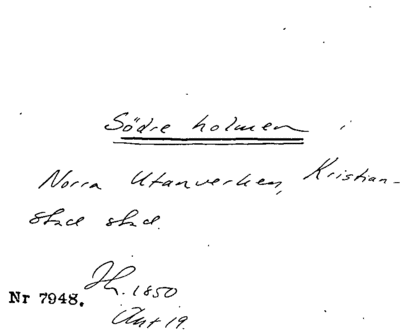 Södre holmen i
Norra Utanverken, Kristian-
stad stad.
1850
Nr 7948.
19.